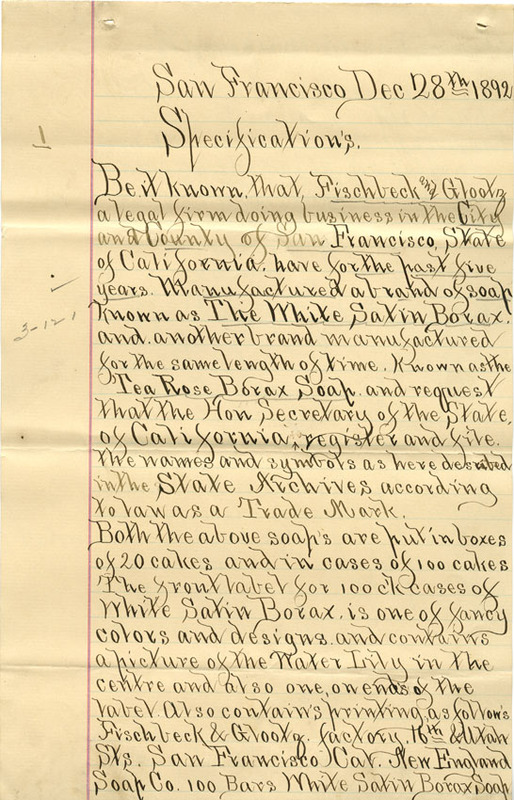 San Francisco Dec 28th 1892
1
Specification's.
Be it known, that, Fischbeck and Glootz
a legal firm doing business in the City
and County of San Francisco, State
of California. have for the past five
years. Manufactured a brand of soap
known as The White Satin Borax.
3-121
and another brand manufactured
for the same length of time. Known as the
Tea Rose Borax Soap. and request
that the Hon Secretary of the State,
of California, register and file.
the names and symbols as here described
in the State Archives according
to law as a Trade Mark.
Both the above soap's are put in boxes
of 20 cakes and in cases of 100 cakes
The front label for 100 ck cases of
White Satin Borax. is one of fancy
colors and designs. and contains
a picture of the Water Lily in the
centre and also one, on ends of the
label. Also contain's printing as follow's
Fischbeck & Glootz. factory. 16th & Utah
Sts. San Francisco Cal. New England
Soap Co. 100 Bars White Satin Borax Soap